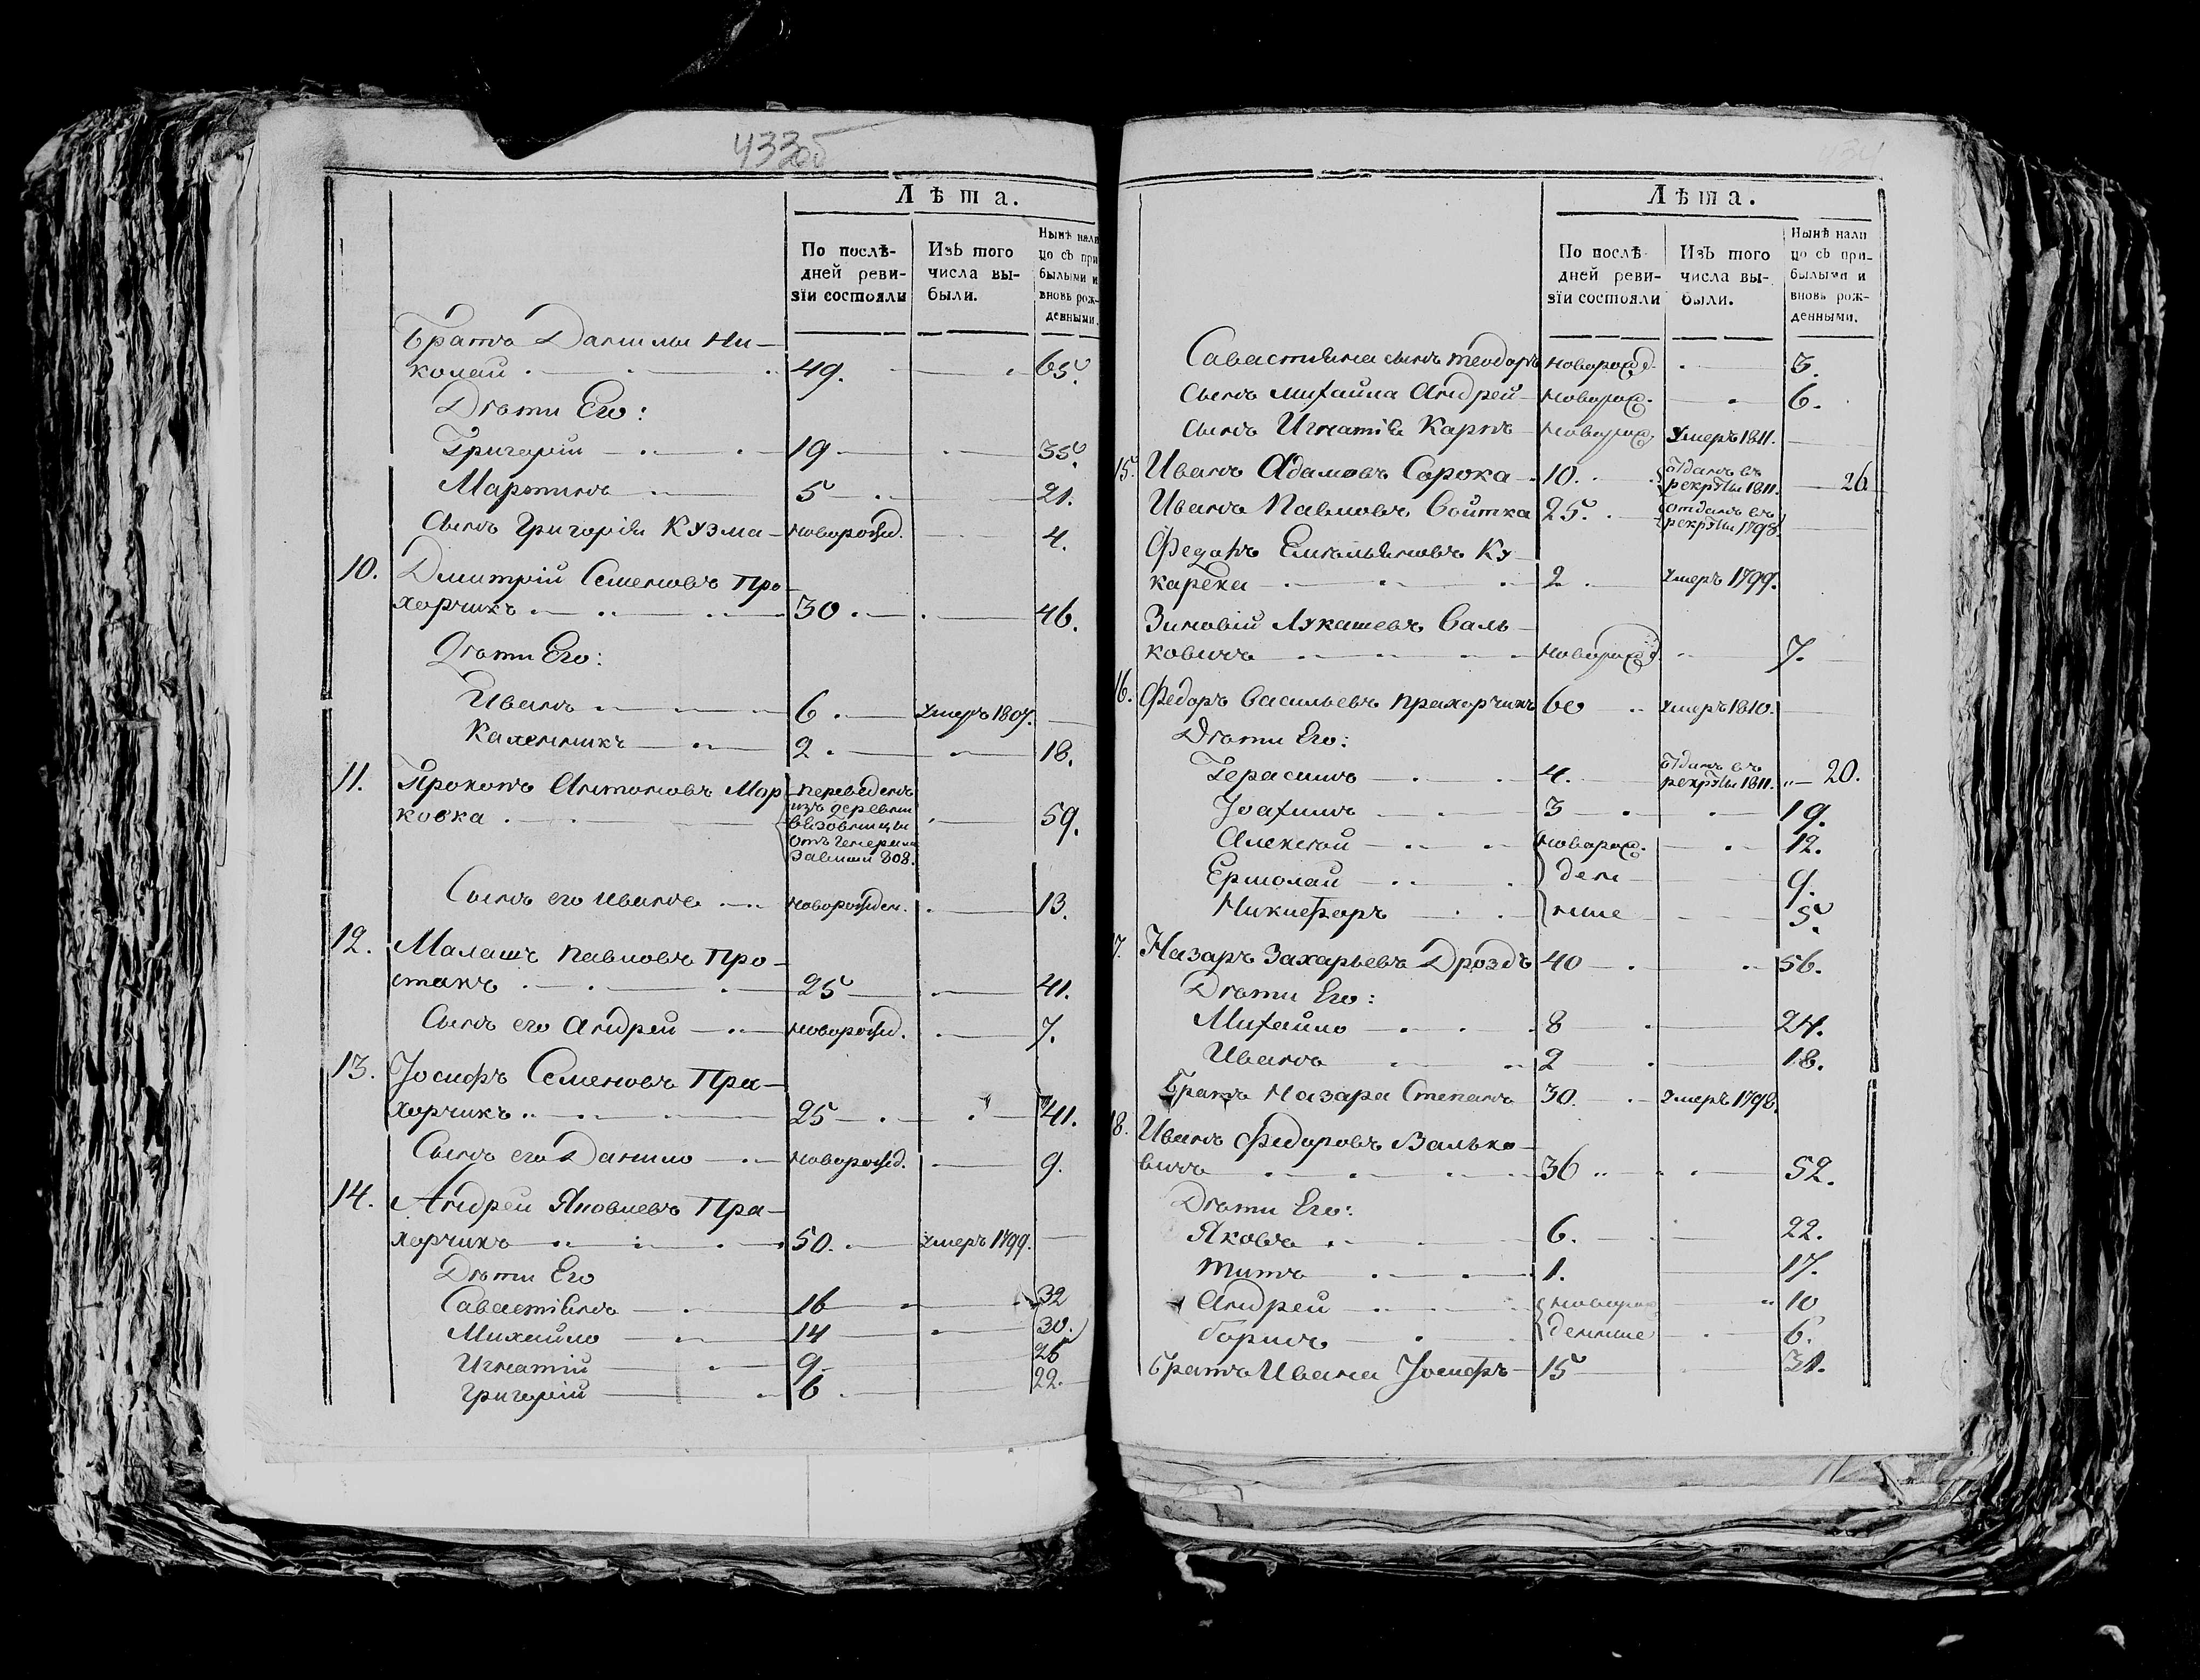 433об
Лѣта.
По послѣ-
дней реви-
зїи состояли
Изъ того
числа вы-
были.
Нынѣ нали
цо съ при
былыми и
вновь рож-
денными.
Братъ Данилы Ни-
колай 49. 65.
Дѣти Его:
Григорій 19 35.
Мартинъ 5 21.
Сынъ Григорія Кузма новорожд. 4.
10. Дмитрій Семеновъ Про
хорчикъ 30 46.
Дѣти Его:
Иванъ 6 умеръ 1807.
Каленникъ 2 18.
11. Прокопъ Антоновъ Мор переведенъ
ковка изъ деревни 59.
отъ генерала
808.
Сынъ его иванъ новорожден. 13.
12. Малашъ павловъ Про-
стакъ 25 41.
Сынъ его андрей новорожд. 7.
13. Іосифъ Семеновъ Пра-
хорчикъ 25 41.
Сынъ его Данило новорожд. 9.
14. Андрей Яковлевъ Пра-
хорчикъ 50. умеръ 1799.
Дѣти Его
Савастіянъ 16 32
Михайло 14 30.
Игнатій 9 26
Григорій 6 22.
434
Лѣта.
По послѣ-
дней реви-
зїи состояли
Изъ того
числа вы-
были.
Нынѣ нали
цо съ при-
былыми и
вновь рож-
денными.
Савастіяна сынъ теодоръ новорожд. 3.
сынъ михайла Андрей новорож. 6.
сынъ Игнатія Карпъ новорож. умеръ 1811.
15. Иванъ Адамовъ Сорока 10. отданъ въ
рекруты 1811. 26
Иванъ Павловъ Войтка 25. отданъ въ
рекруты 1798.
Федоръ Емельяновъ Ку-
карека 2 умеръ 1799.
Зиновій Лукашевъ Валь-
ковичъ новорожд. 7.
16. Федоръ Васильевъ прахорчикъ 60 умеръ 1810.
Дѣти Его:
Герасимъ 4. отданъ въ
рекруты 1811. 20.
Іоахимъ 3 19.
Алексѣй новорож. 12.
Ермолай ден 9.
Никифоръ ные 5.
17. Назаръ Захарьевъ Дроздъ 40 56.
Дѣти Его:
Михайло 8 24.
Иванъ 2 18.
Братъ Назара Степанъ 30. умеръ 1798.
18. Иванъ Федоровъ Валько-
вичъ 36 52.
Дѣти Его:
Яковъ 6. 22.
титъ 1. 17.
Андрей новорож 10
борисъ денные 6.
Братъ Ивана Іосифъ 15 31.